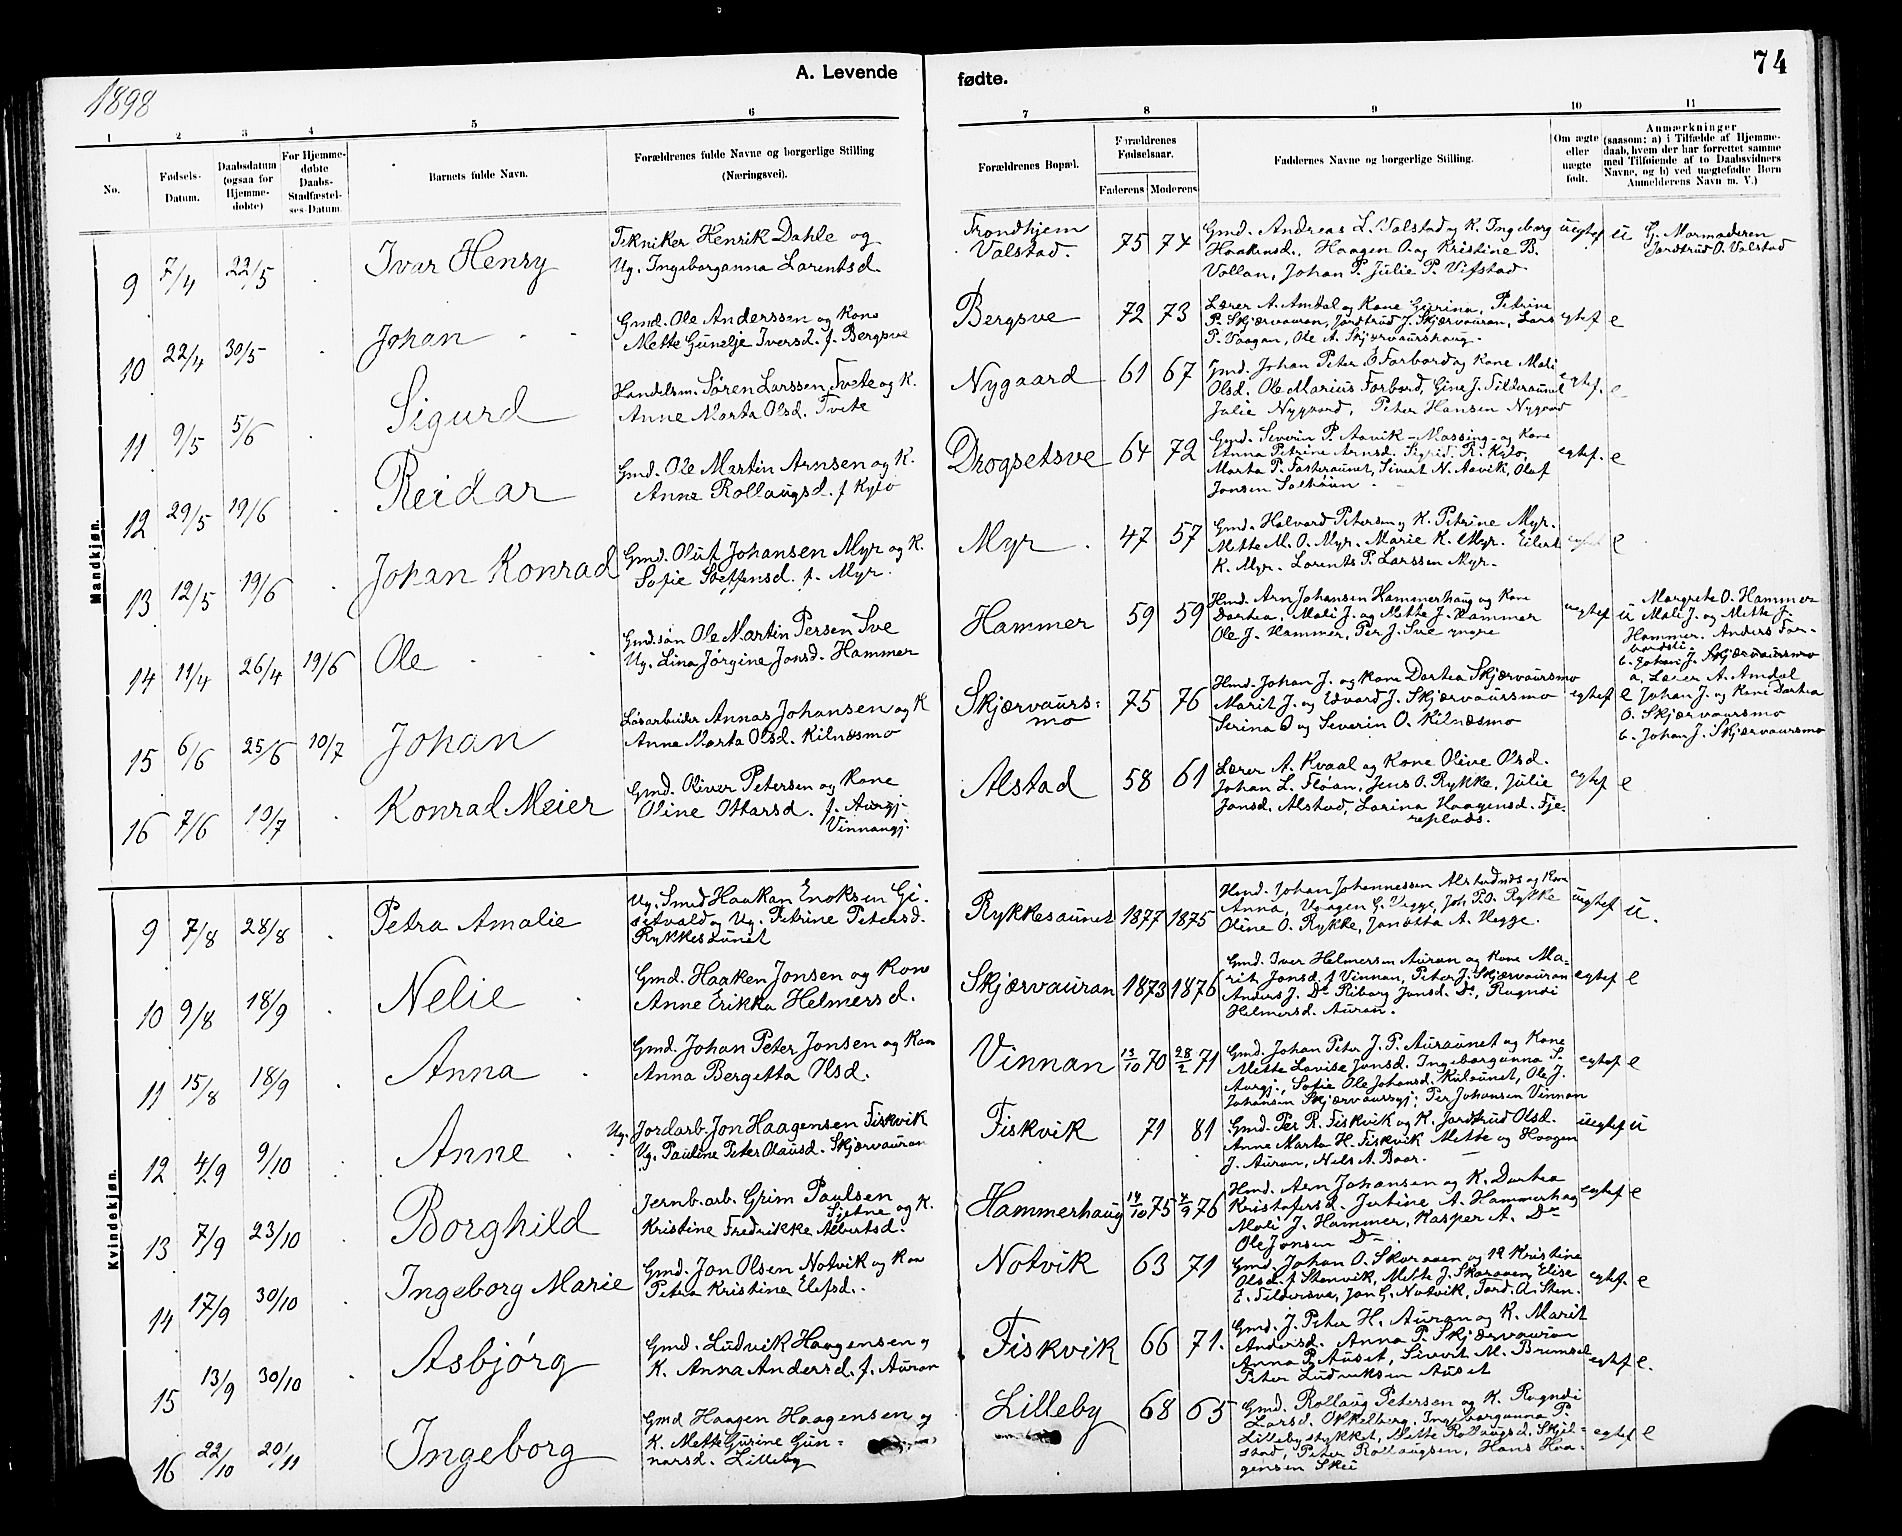 A. Levende fødte.
74
1898
1 2 3 4 5 6 7 8 9 10 11
No.
Fødsels-Datum.
Daabsdatum (ogsaa for Hjemme-døbte)
For Hjemme-døbte Daabs-Stadfæstel-ses-Datum.
Barnets fulde Navn.
Forældrenes fulde Navne og borgerlige Stilling (Næringsvei).
Forældrenes Bopæl.
Forældrenes Fødselsaar.
Faderens Moderens
Faddernes Navne og borgerlige Stilling.
Om ægte eller uægte født.
Anmærkninger (saasom: a) i Tilfælde af Hjemme-daab, hvem der har forrettet samme med Tilføiende af to Daabsvidners Navne, og b) ved uægtefødte Børn Anmelderens Navn m. V.)
Mandkjøn.
9 7/4 22/5 Ivar Henry
Tekniker Henrik Dahle og
Ug. Ingeborganna Larentsd.
Trondhjem
Valstad.
75 74
Gmd. Andreas L. Valstad og K. Ingeborg
Haakensd. Haagen O. og Kristine B.
Vollan, Johan P. Julie P. Vifstad.
uegtef u
G. Mormoderen
Jardtrud O. Valstad
10 22/4 30/5 Johan
Gmd. Ole Anderssen og Kone
Mette Gunelje Iversd. f. Bergsve
Bergsve 72 73
Lærer A. Amdal og Kone Gjerina, Petrine
P. Skjærvauran, Jardtrud J. Skjærvauran, Lars
P. Faagan, Ole A. Skjærvaurshaug.
egtef e
11 9/5 5/6 Sigurd
Handelsm. Sören Larssen Tvete og K.
Anne Marta Olsd. Tvete
Nygaard 61 67
Gmd. Johan Peter O Forbord og Kone Mali
Olsd. Ole Marius Forbord, Gine J. Tilderaunet
Julie Nygaard, Peter Hansen Nygaard
egtef. e
12 29/5 19/6 Reidar
Gmd. Ole Martin Arnsen og K.
Anne Rollaugsd. f Kylo
Drogsetsve 64 72
Gmd. Severin P. Aavik - Massing - og Kone
Anna Petrine Arnsd. Sigrid R. Kylo,
Marta P. Fasteraunet, Sivert N. Aavik, Oluf
Jonsen Solhaun.
egtef. e
13 12/5 19/6 Johan Konrad
Gmd. Oluf Johansen Myr og K.
Sofie Steffensd. f. Myr.
Myr 47 57
Gmd. Halvard Petersen og K. Petrine Myr.
Mette M. O. Myr. Marie K. Myr. Eilert
K. Myr. Lorents P. Larssen Myr.
egtef e
14 11/4 26/4 19/6 Ole
Gmd.søn Ole Martin Persen Sve
Ug. Lina Jörgine Jonsd. Hammer
Hammer 59 59
Hmd. Arn Johansen Hammerhaug og Kone
Dortea, Mali J. og Mette J. Hammer
Ole J. Hammer, Per J. Sve yngre
uegtef u
Margrete O. Hammer
Mali J. og Mette J.
Hammer. Anders For-
bordsli.
b. Johan J. Skjærvaursmo
15 6/6 25/6 10/7 Johan
Lösarbeider Annas Johansen og K
Anne Marta Olsd. Kilnæsmo
Skjærvaurs:
mo
75 76
Hmd. Johan J. og Kone Dortea Skjærvaursmo
Marit J. og Edvard J. Skjærvaursmo
Serina O og Severin O. Kilnæsmo
egtef e
a, Lærer A. Amdal
Johan J. og Kone Dortea
O. Skjærvaursmo
b. Johan J. Skjærvaursmo
16 7/6 10/7 Konrad Meier
Gmd. Oliver Petersen og Kone
Oline Ottarsd. f. Aurgj.
Vinnangj.
Alstad 58 61
Lærer A. Kvaal og Kone Olive Olsd.
Johan L. Floan, Jens O. Rykke, Julie
Jonsd. Alstad, Larina Haagensd. Fje-
replads.
egtef e
Kvindekjøn.
9 7/8 28/8 Petra Amalie
Ug. Smed Haakan Enoksen Gi-
setvald og Ug. Petrine Petersd.
Rykkesaunet
Rykkesaunet 1877 1875
Hmd. Johan Johannessen Alstadnæs og Kone
Anna, Haagen G. Vegge, Joh. P.O. Rykke
Oline O. Rykke, Janetta A. Hegge.
uegtef u.
10 9/8 18/9 Nelie
Gmd. Haaken Jonsen og Kone
Anne Erikka Helmersd.
Skjærvauran 1873 1876
Gmd. Iver Helmersen Auran og Kone Ma-
rit Jonsd f Vinnan, Peter J. Skjærvauran
Anders J. Do Riborg Jonsd. Do, Ragndi
Helmersd. Auran.
egtef e
11 15/8 18/9 Anna
Gmd. Johan Peter Jonsen og Kone
Anna Bergetta Olsd.
Vinnan 13/10 70 28/2 71
Gmd. Johan Peter J. P. Auraunet og Kone
Mette Lovise Jonsd. Ingeborganna S.
Aurgj., Sofie Ole Johansd. Kulaunet, Ole J.
Johansen Skjærvaursgj: Per Johansen Vinnan
egtef e
12 4/9 9/10 Anne
Ug. Jordarb. Jon Haagensen Fiskvik
Ug. Pauline Peter Olausd. Skjærvauran
Fiskvik 71 81
Gmd. Per R. Fiskvik og K. Jardtrud Olsd.
Anne Marta H. Fiskvik Mette og Haagen
J. Auran, Nels A. Baar.
uegtef u
13 7/9 23/10 Borghild
Jernb.arb. Grim Paulsen
Sjetne og K.
Kristine Fredrikke Albertsd.
Hammerhaug 14/10 75 4/9 76
Hmd. Arn Johansen og K. Dortea
Kristofersd. Justine A. Hammerhaug
Mali J. Hammer, Kasper A. Do
Ole Jonsen Do
egtef e
14 17/9 30/10 Ingeborg Marie
Gmd. Jon Olsen Notvik og Kone
Petra Kristine Elefsd.
Notvik 63 71
Gmd. Johan O. Skaraaen og K Kristine
Olsd. f Stenvik, Mette J. Skaraaen, Elise
E. Tildersva, Jon G. Notvik, Tord. A. Sten.
egtef. e
15 13/9 30/10 Asbjörg
Gmd. Ludvik Haagensen og
K. Anna Andersd. f. Auran
Fiskvik 66 71.
Gmd. J. Peter H. Auran og K. Marit
Andersd. Anna P. Skjærvauran
Anna P. Auset, Sivert M. Brumsel
Peter Ludviksen Auset
egtef e.
16 22/10 20/11 Ingeborg
Gmd Haagen Haagensen og
K. Mette Gurine Gun-
narsd. Lilleby
Lilleby 68 65
Gmd. Rollaug Petersen og K. Ragndi
Larsd. Okkelberg, Ingeborganna P.
Lillebystykket, Mette Rollaugsd. Skjel-
stad, Peter Rollaugsen, Hans Haa-
gensen Skei
egtef e